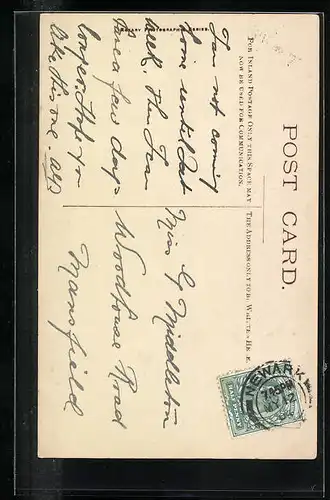 POST CARD.
ROTARY PHOTOGRAPHIC SERIES.
FOR INLAND POSTAGE ONLY THIS SPACE MAY
NOW BE USED FOR COMMUNICATION.
THE ADDRESS ONLY TO BE WRITTEN HERE.
I am not coming
home until Sat
week.
a few days
longer. Hope you
like this one.
Miss G Middleton
Woodhouse Road
Mansfield
NEWARK
HALF PENNY